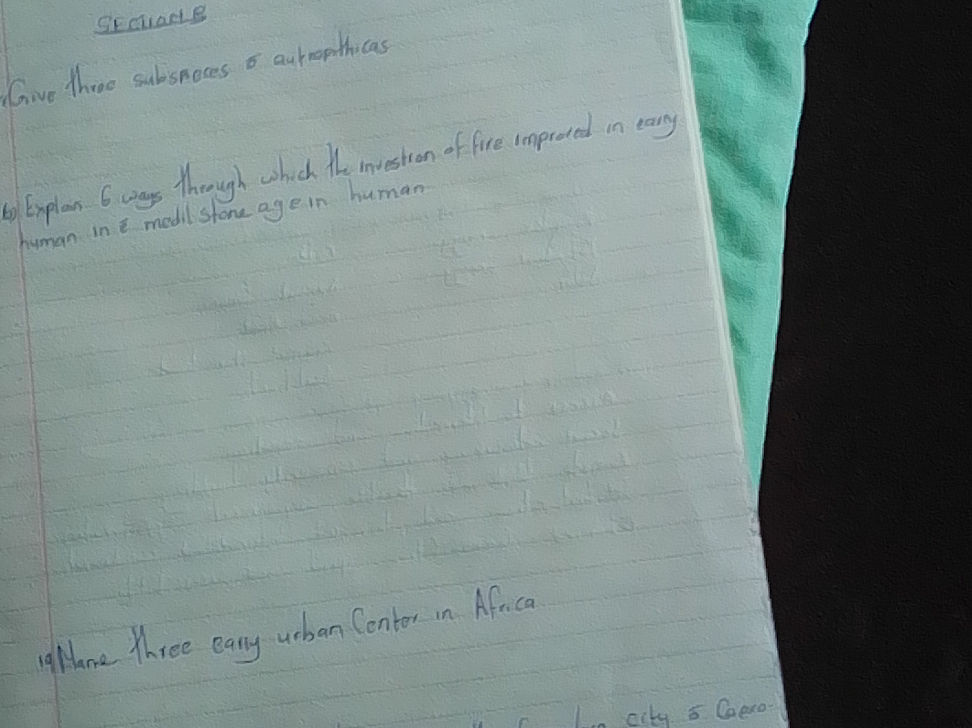 SECTION B
Give three subspeces of autropithicas
b) Explan 6 ways through which the investion of fire improved in early
human in the medil stone age in human
19 Name three early urban Center in Africa
city of Caero